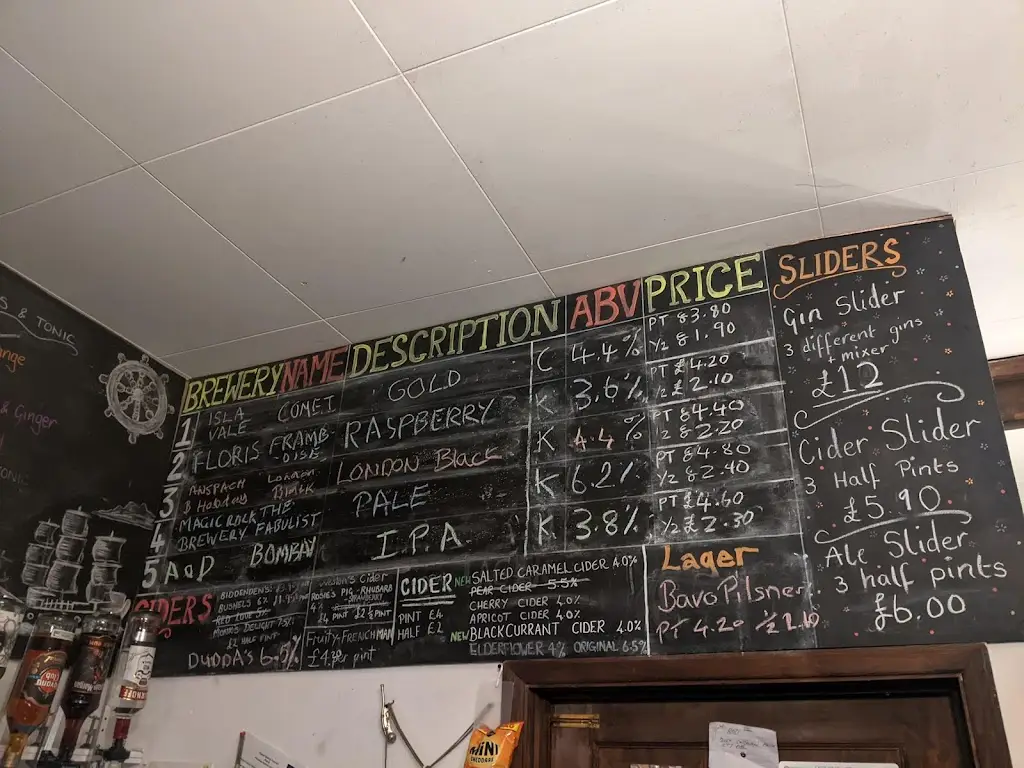 & TONIC
& Ginger
BREWERY NAME DESCRIPTION ABV PRICE
1 ISLA VALE COMET GOLD C 4.4% PT £3.80 ½ £1.90
2 FLORIS FRAMBOISE RASPBERRY K 3.6% PT £4.20 ½ £2.10
3 ANSPACH & Hobday London Black LONDON BLACK K 4.4% PT £4.40 ½ £2.20
4 MAGIC ROCK BREWERY THE FABULIST PALE K 6.2% PT £4.80 ½ £2.40
5 A&D BOMBAY I.P.A K 3.8% PT £4.60 ½ £2.30
SLIDERS
Gin Slider
3 different gins
+ mixer
£12
Cider Slider
3 Half Pints
£5.90
Ale Slider
3 half pints
£6.00
CIDERS
BIDDENDENS
RED LOVE
DUDDA'S 6.5%
Cider
ROSIE'S PIG RHUBARB
Fruity-FRENCHMAN
per pint
CIDER
PINT £4
HALF £2
NEW SALTED CARAMEL CIDER 4.0%
PEAR CIDER 5.5%
CHERRY CIDER 4.0%
APRICOT CIDER 4.0%
NEW BLACKCURRANT CIDER 4.0%
ELDERFLOWER 4% ORIGINAL 6.5%
Lager
Bavo Pilsner
PT 4.20
MINI
CHEDDARS